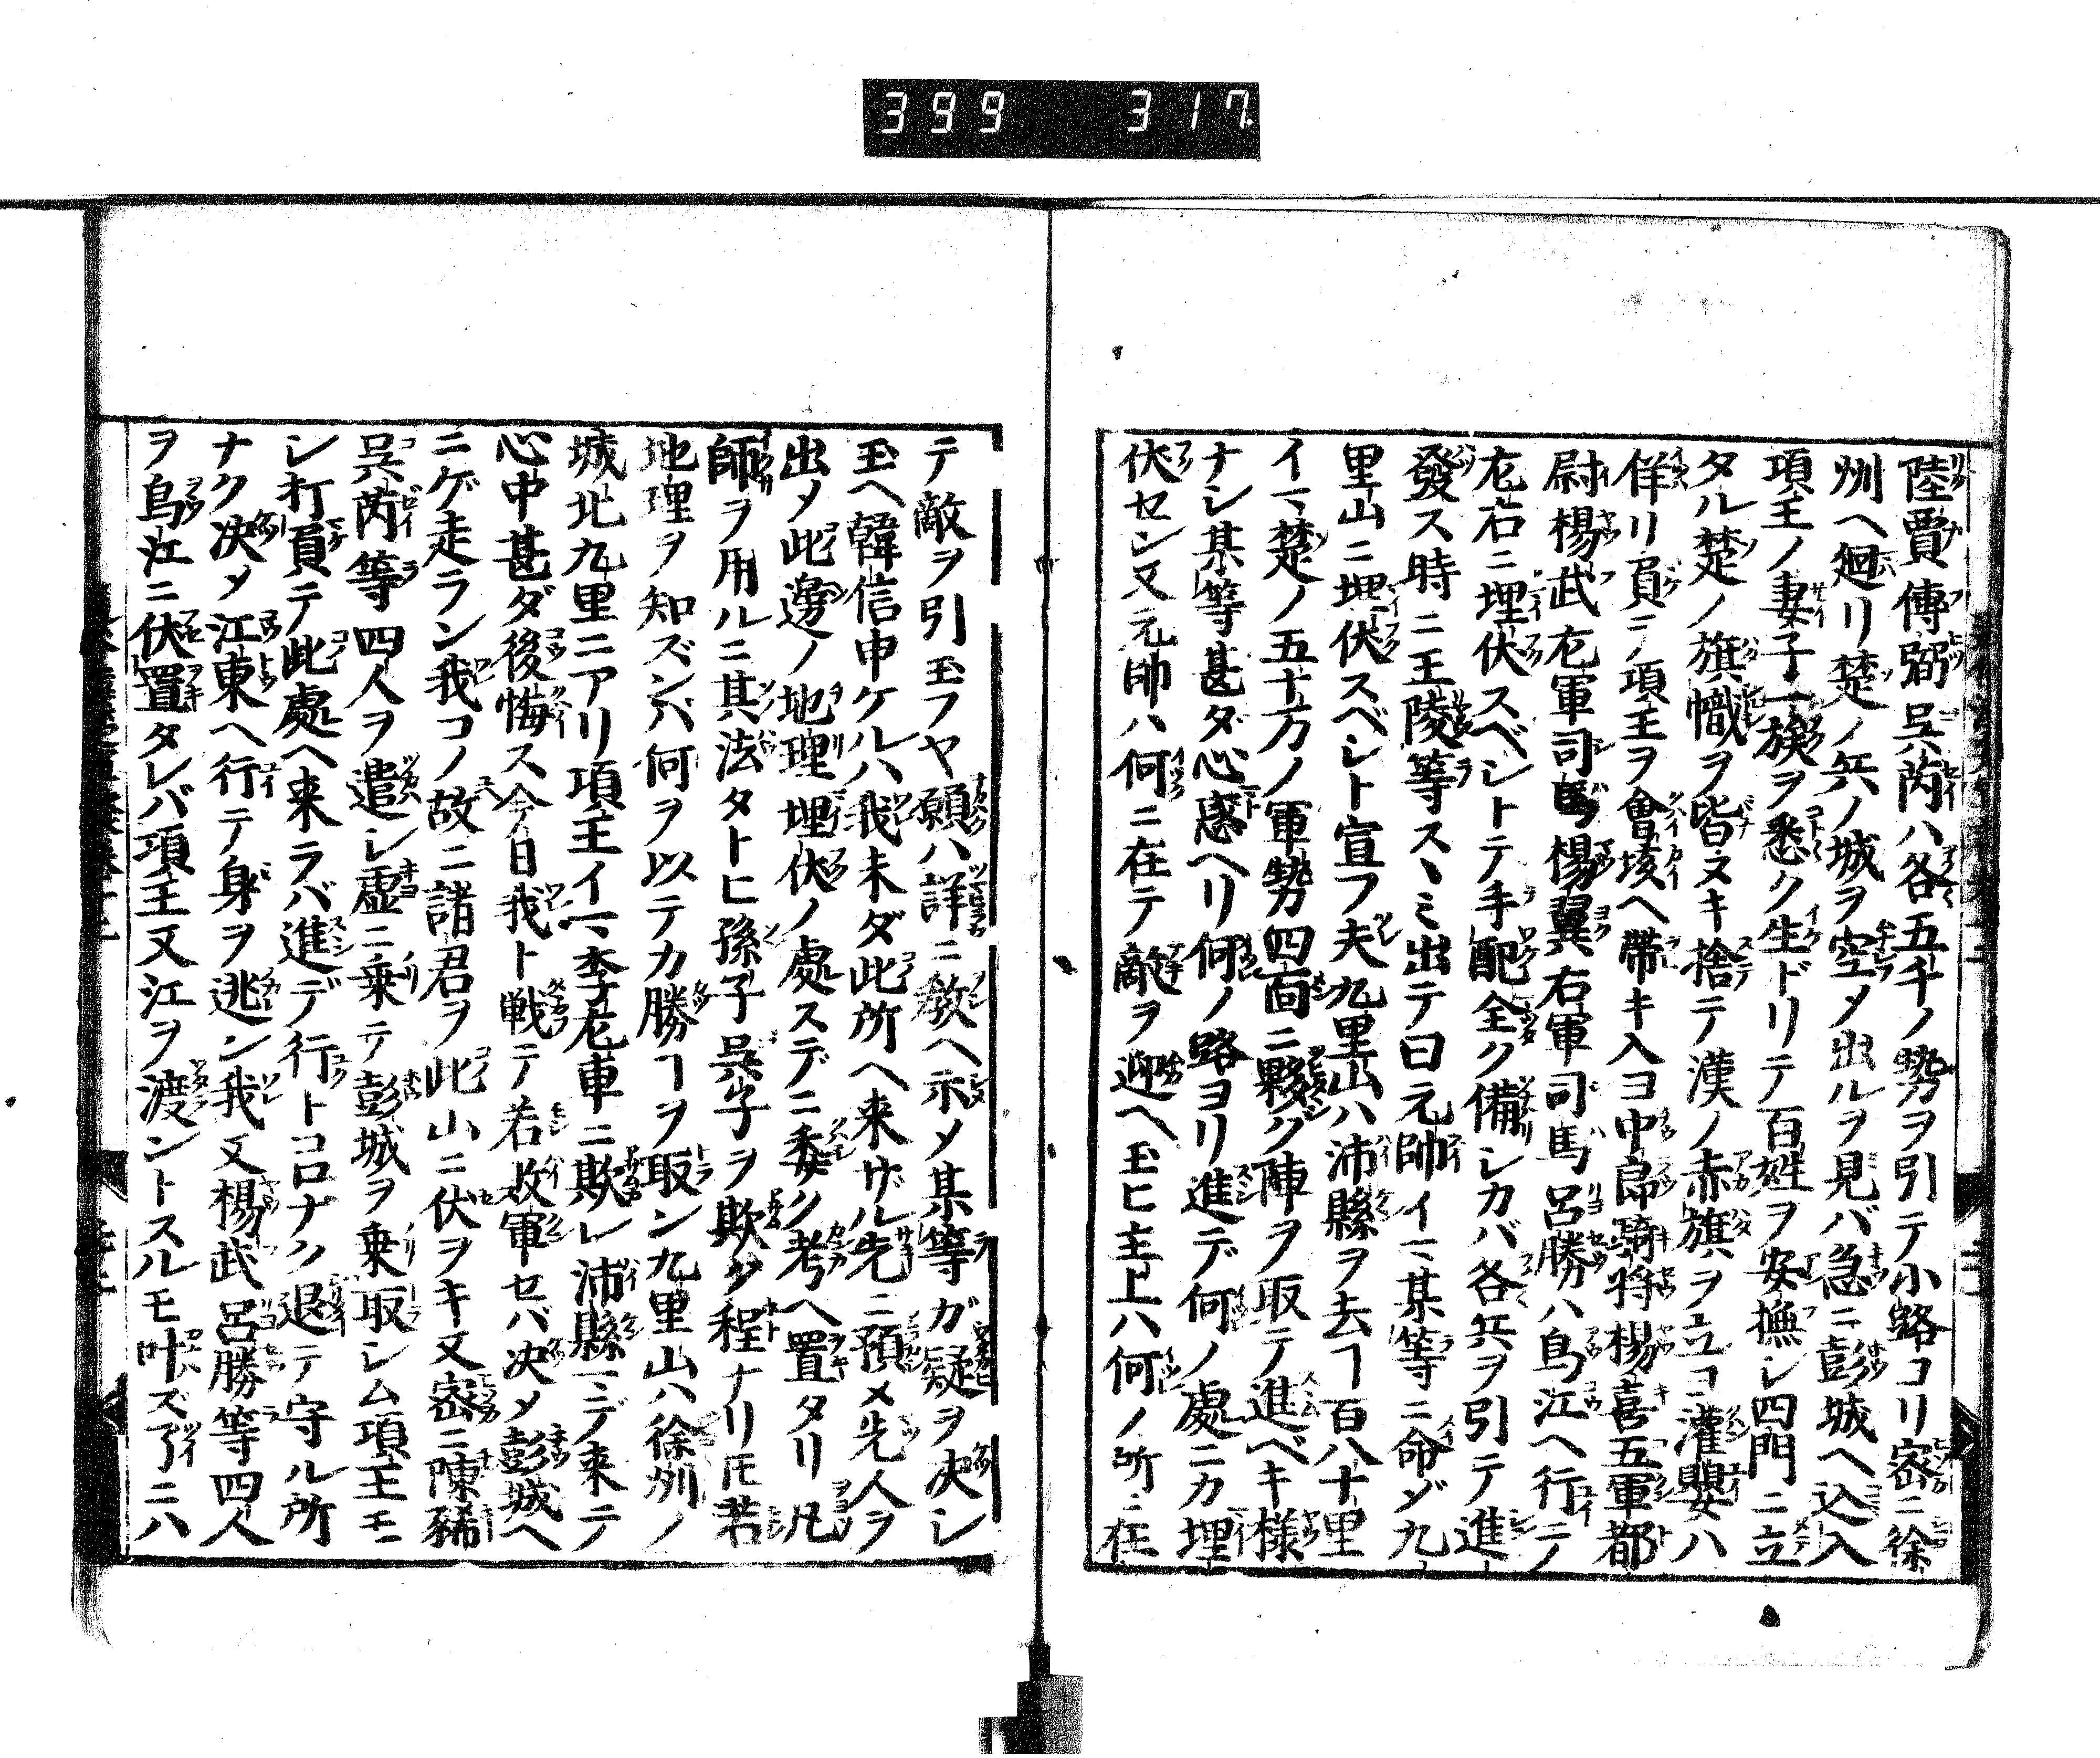 399 317
陸賈傅弼呉芮ハ各五千ノ勢ヲ引テ小路ヨリ密ニ徐
州ヘ廻リ楚ノ兵ノ城ヲ空メ出ルヲ見バ急ニ彭城ヘ込入
項王ノ妻子一族ヲ悉ク生ドリテ百姓ヲ安撫シ四門ニ立
タル楚ノ旗幟ヲ皆ヌキ捨テ漢ノ赤旗ヲ立ヨ灌嬰ハ
佯リ負テ項王ヲ會垓ヘ帶キ入ヨ中郎騎将楊喜五軍都
尉楊武左軍司馬楊翼右軍司馬呂勝ハ烏江ヘ行テノ
左右ニ埋伏スベシトテ手配全ク備シカバ各兵ヲ引テ進
發ス時ニ王陵等スヽミ出テ曰元帥イマ某等ニ命ジ九
里山ニ埋伏スベシト宣フ夫九里山ハ沛縣ヲ去ヿ百八十里
イマ楚ノ五十万ノ軍勢四面ニ夥ク陣ヲ取テ進ベキ様
ナシ某等甚ダ心惑ヘリ何ノ路ヨリ進デ何ノ處ニカ埋
伏セン又元帥ハ何ニ在テ敵ヲ迎ヘ玉ヒ主上ハ何ノ所ニ在
テ敵ヲ引玉フヤ願ハ詳ニ教ヘ示メ某等ガ疑ヲ决シ
玉ヘ韓信申ケルハ我未ダ此所ヘ来ザル先ニ預メ先人ヲ
出メ此邊ノ地理埋伏ノ處スデニ委ク考ヘ置タリ凡
師ヲ用ルニ其法タトヒ孫子呉子ヲ欺ク程ナリ𪜈若
地理ヲ知ズンバ何ヲ以テカ勝ヿヲ取ン九里山ハ徐州ノ
城北九里ニアリ項王イマ李左車ニ欺レ沛縣マデ来テ
心中甚ダ後悔ス今日我ト戦テ若敗軍セバ决メ彭城ヘ
ニゲ走ラン我コノ故ニ諸君ヲ此山ニ伏ヲキ又密ニ陳豨
呉芮等四人ヲ遣シ虚ニ乗テ彭城ヲ乗取シム項王モ
シ打負テ此處ヘ来ラバ進デ行トコロナク退テ守ル所
ナク决メ江東ヘ行テ身ヲ逃ン我又楊武呂勝等四人
ヲ烏江ニ伏置タレバ項王又江ヲ渡ントスルモ叶ズ了ニハ